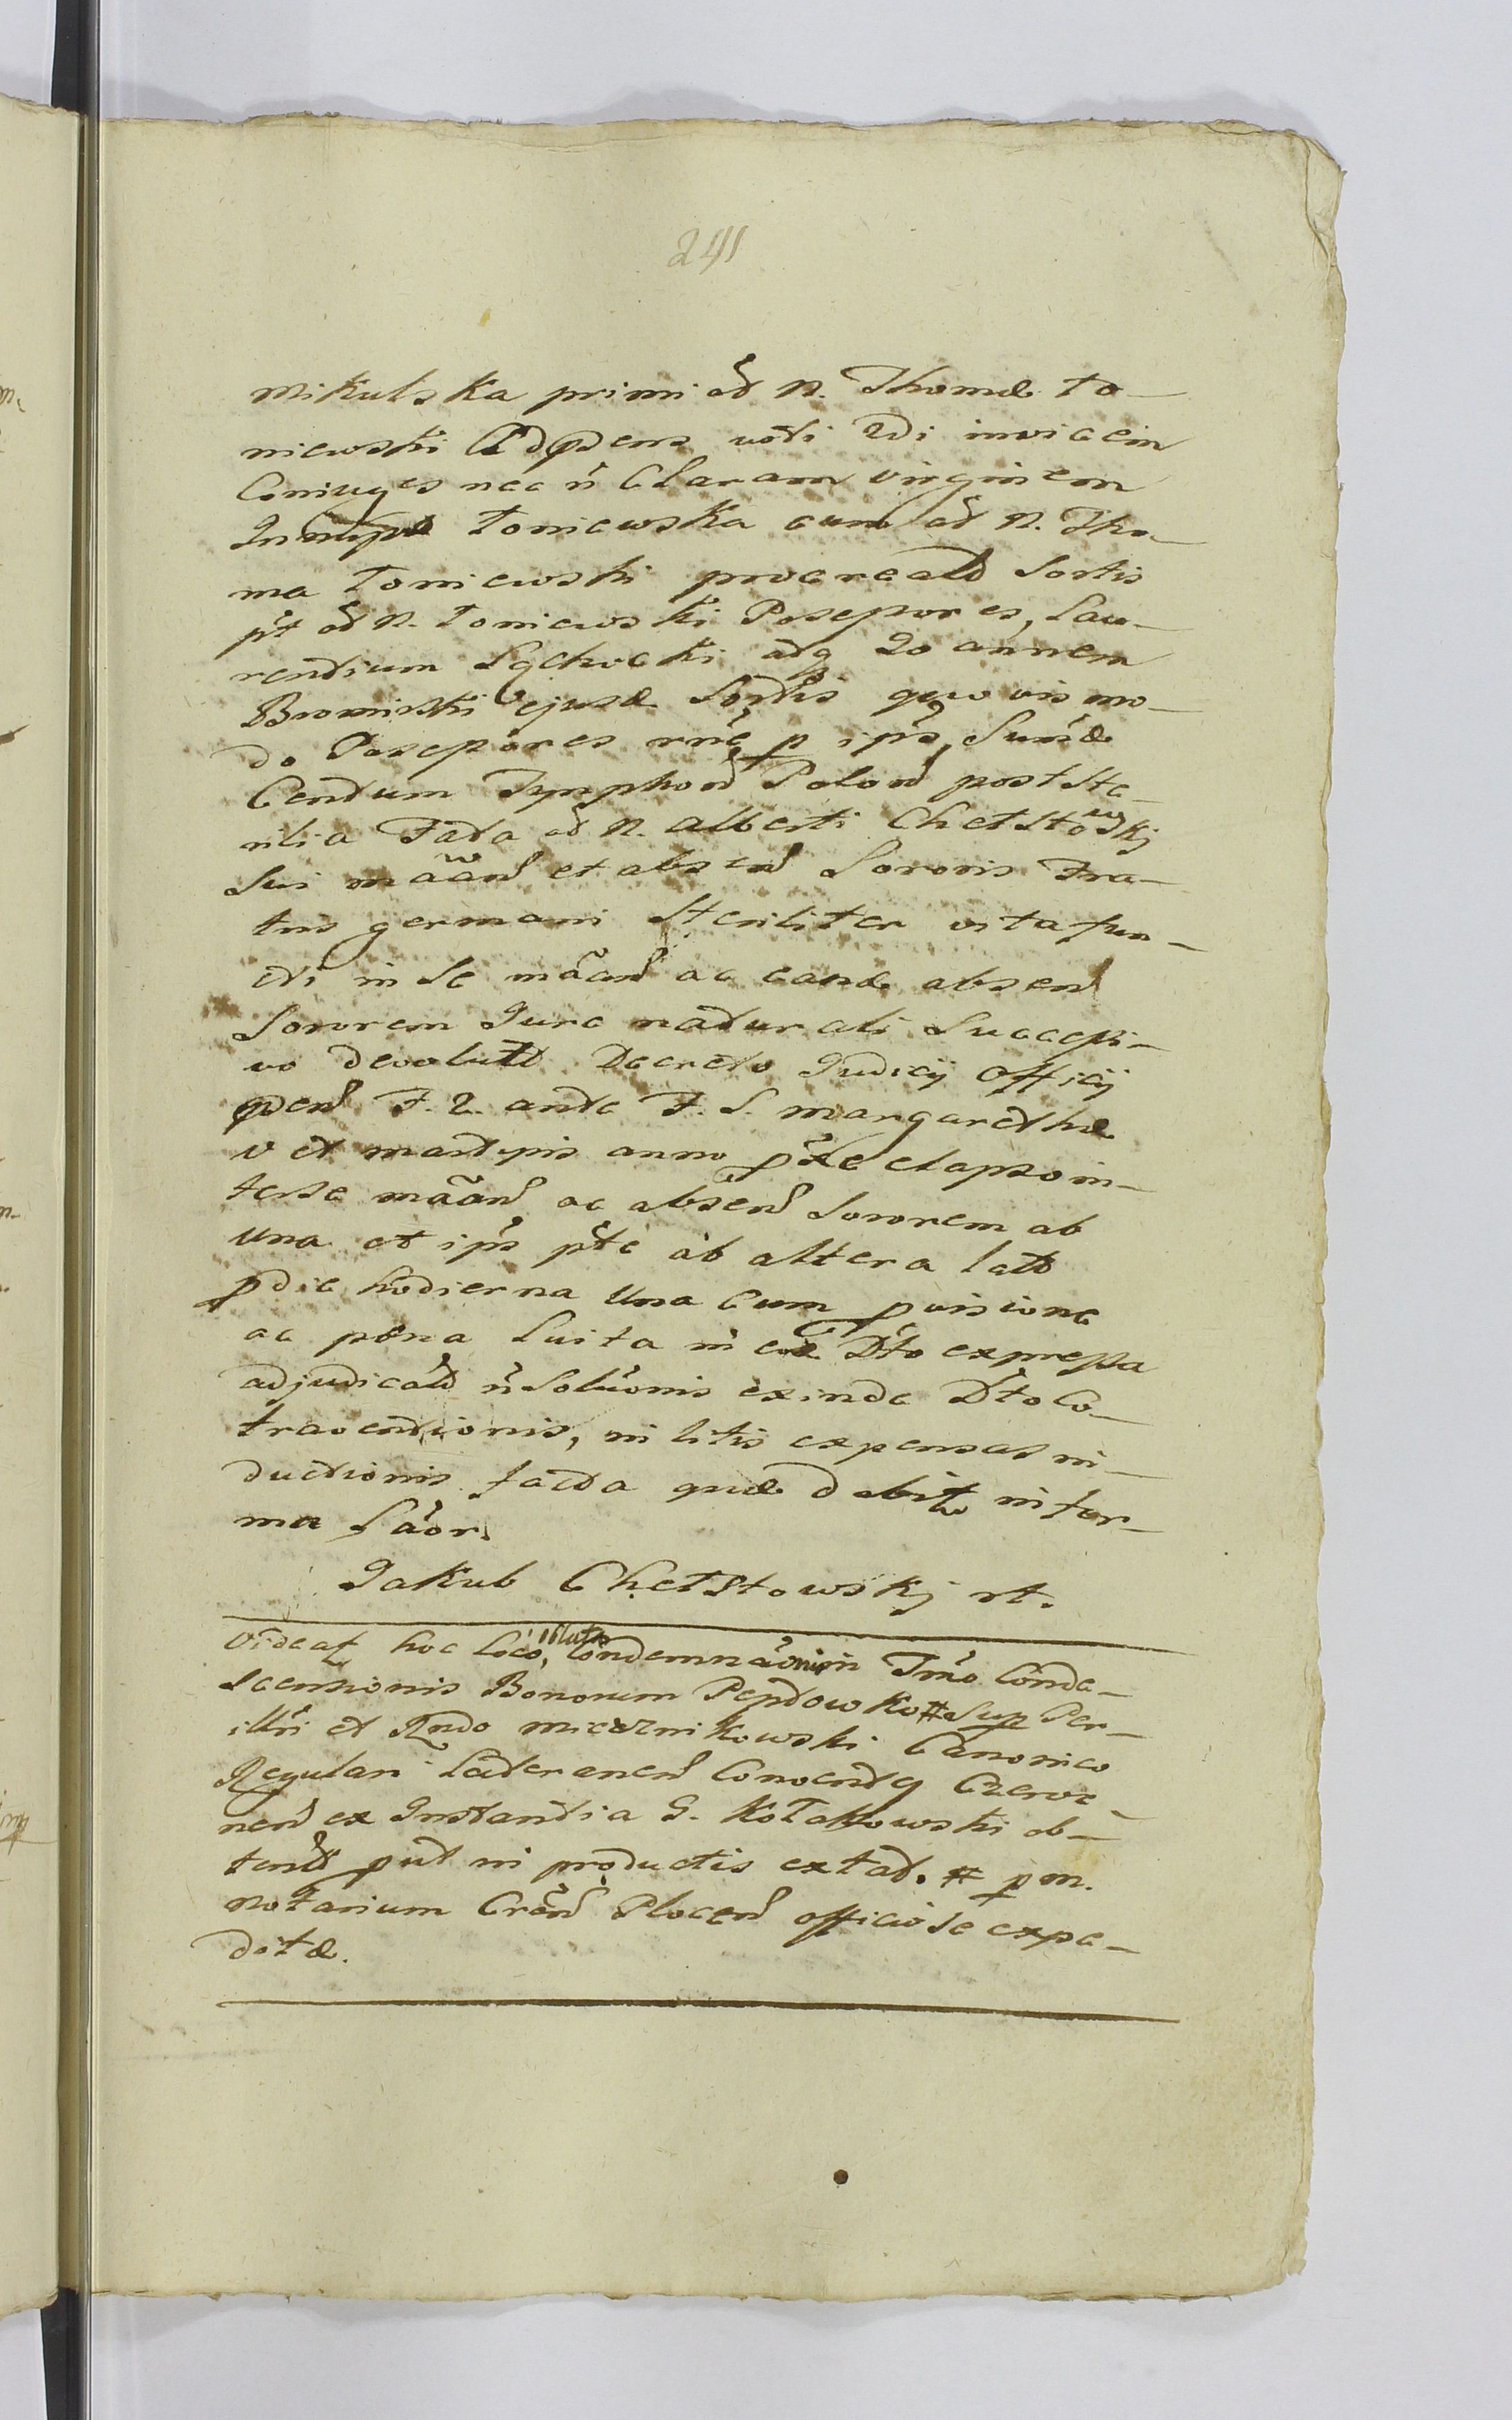 241
Mikulska primi od N. Thomæ To-
niewski Ad p̃sens voti 2di invicem
Coniuges nec n̄ Claram virginem
Toniewska cum od N. Tho-
ma Toniewski procreatã Sortis
p̃t od N. Toniewski Possessores, Lau-
rentium Lęchocki atq Joannem
Bromirski ejusde Sortis quovis mo-
do Possessores rñe p ipã Sum̃æ
Centum Tynphoñ Poloñ post Ste-
rilia Fata od N. Alberti Chełstowskj
Sui mããñ et absen̄ Sororis Fra-
tris germani Steriliter vita fun-
cti in Se mãañ ac eande absen̄
Sororem Jure naturali Successi-
vo devolutã Decreto Judicij Officij
p̃sen̄ F. 2. ante F. S. Margarethæ
V et Martyris anno p̃xe elapso in-
terse mããñ ac absen̄ Sororem ab
una et ip̃s p̃te ab altera latõ
p die hodierna una cum p visione
ac pæna Luita in eode Dt̃o expressa
adjudicatã n̄ Solũonis exinde Dt̃o Co-
traventionis, in litis expensas in-
ductionis facta quæ debite in ter-
mi Lãor
Jakub Chełstowskj rt.
Videat hoc loco, Condemnãonis in Tm̃o Conde-
scensionis Bonorum Peptowko # Sup Per-
illri et Rndo Miecznikowski Canonico
Regulari Lateranen̄ Conventq Czerve-
nen̄ ex Instantia G. Kołakowski ob-
tentã put in productis extat. # p M.
Notarium Crẽn̄ Plocen̄ officiose expe-
ditæ.